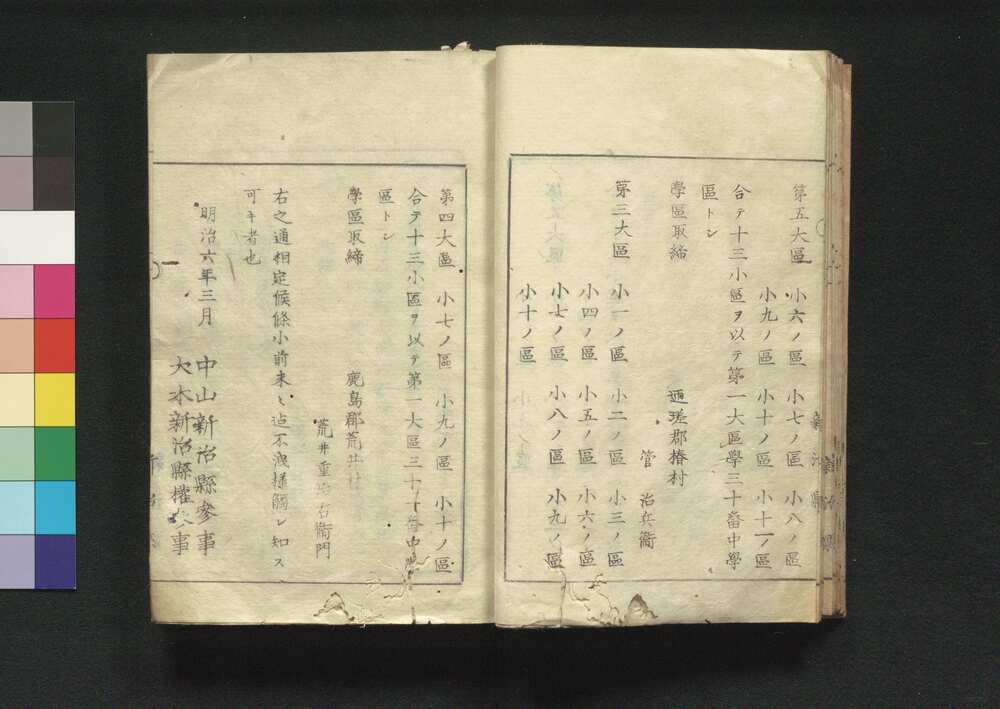 第五大區　小六ノ區　小七ノ區　小八ノ區
小九ノ區　小十ノ區　小十一ノ區
合テ十三小區ヲ以テ第一大區學三十番中學
區トシ
學區取締　　　匝瑳郡椿村
管　治兵衞
第三大區　小一ノ區　小二ノ區　小三ノ區
小四ノ區　小五ノ區　小六ノ區
小七ノ區　小八ノ區　小九ノ區
小十ノ區
第四大區　小七ノ區　小九ノ區　小十ノ區
合テ十三小區ヲ以テ第一大區三十一番中學
區トシ
學區取締　　　鹿島郡荒井村
荒井重右衞門
右之通相定候條小前末々迠不洩樣觸レ知ス
可キ者也
明治六年三月　中山新治縣參事
大木新治縣權參事